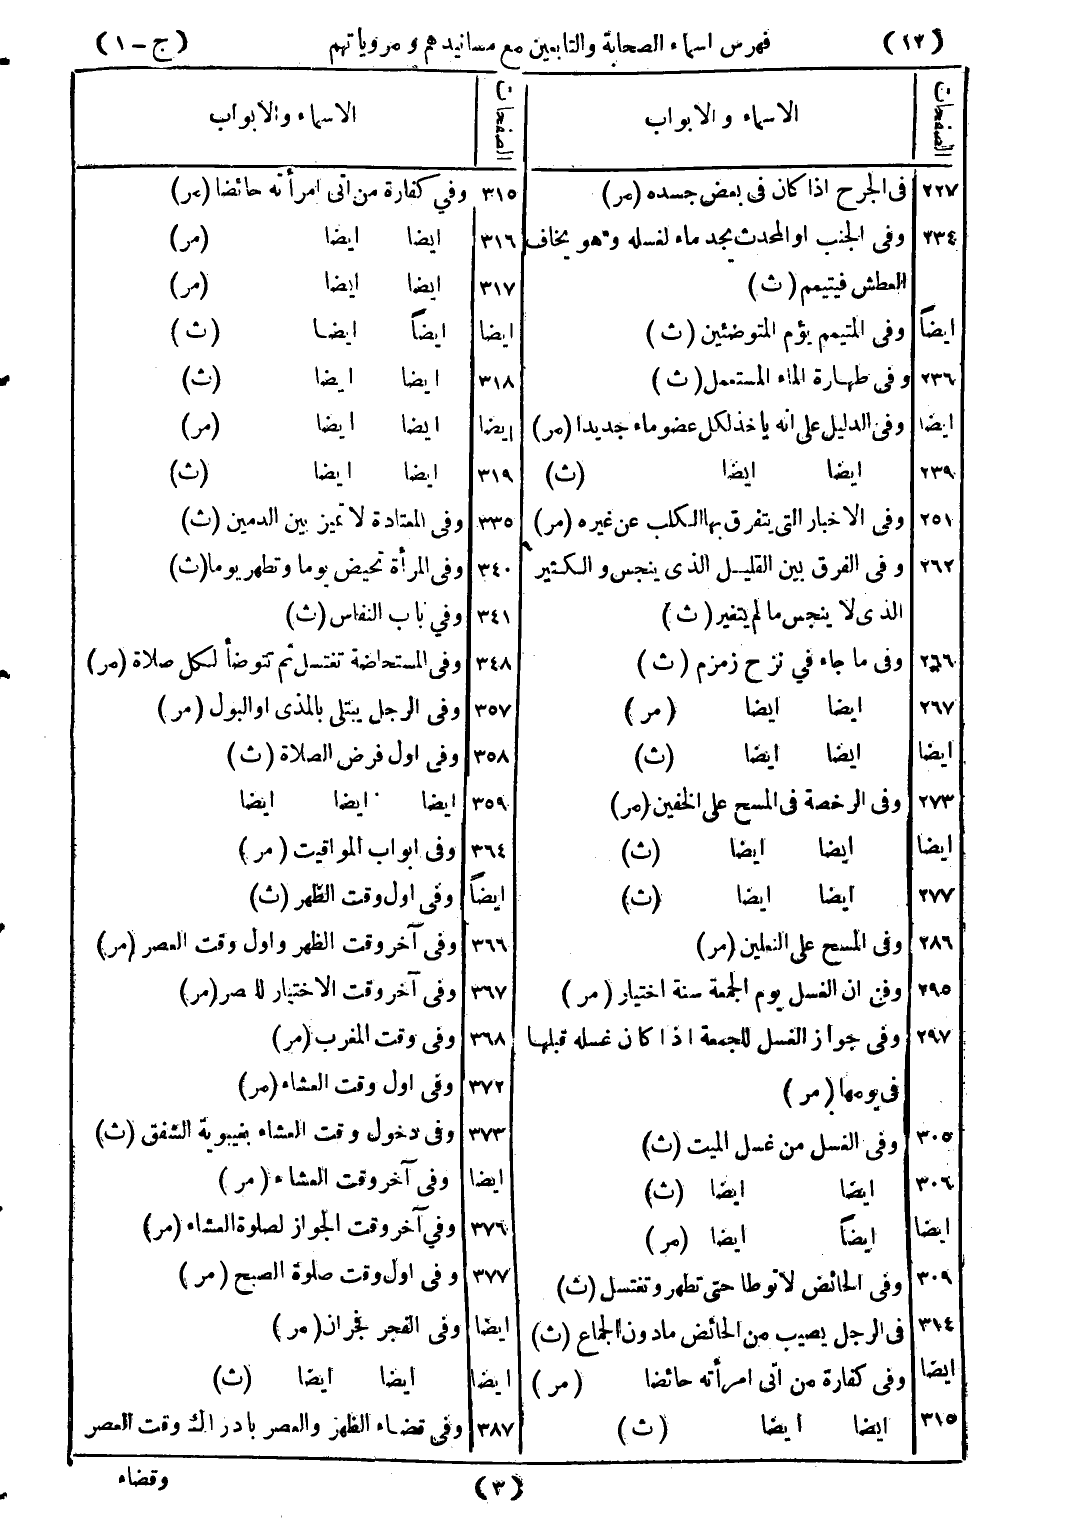 (١٣) فهرس اسماء الصحابة والتابعين مع مسانيدهم ومروياتهم (ج-١)
الصفحات الاسماء والابواب
٢٢٧ فى الجرح اذا كان فى بعض جسده (مر)
٢٣٤ وفى الجنب او المحدث يجد ماء لغسله وهو يخاف
العطش فيتيمم (ث)
ايضاً وفى المتيمم يؤم المتوضئين (ث)
٢٣٦ وفى طهارة الماء المستعمل (ث)
ايضا وفى الدليل على انه يأخذ لكل عضو ماء جديدا (مر)
٢٣٩ ايضا ايضا (ث)
٢٥١ وفى الاخبار التى يتفرق بها الكلب عن غيره (مر)
٢٦٢ وفى الفرق بين القليل الذى ينجس والكثير
الذى لا ينجس ما لم يتغير (ث)
٢٦٦ وفى ما جاء في نزح زمزم (ث)
٢٦٧ ايضا ايضا (مر)
ايضا ايضا ايضا (ث)
٢٧٣ وفى الرخصة فى المسح على الخفين (مر)
ايضا ايضا ايضا (ث)
٢٧٧ ايضا ايضا (ث)
٢٨٦ وفى المسح على النعلين (مر)
٢٩٥ وفى ان الغسل يوم الجمعة سنة اختيار (مر)
٢٩٧ وفى جواز الغسل للجمعة اذا كان غسله قبلها
فى يومها (مر)
٣٠٥ وفى الغسل من غسل الميت (ث)
٣٠٦ ايضا ايضا (ث)
ايضا ايضاً ايضا (مر)
٣٠٩ وفى الحائض لا توطا حتى تطهر وتغتسل (ث)
٣١٤ فى الرجل يصيب من الحائض مادون الجماع (ث)
ايضا وفى كفارة من اتى امرأته حائضا (مر)
٣١٥ ايضا ايضا (ث)
الصفحات الاسماء والابواب
٣١٥ وفي كفارة من اتى امرأته حائضا (مر)
٣١٦ ايضا ايضا (مر)
٣١٧ ايضا ايضا (مر)
ايضا ايضاً ايضا (ث)
٣١٨ ايضا ايضا (ث)
ايضا ايضا ايضا (مر)
٣١٩ ايضا ايضا (ث)
٣٣٥ وفى المعتادة لا تميز بين الدمين (ث)
٣٤٠ وفى المرأة تحيض يوما وتطهر يوما (ث)
٣٤١ وفي باب النفاس (ث)
٣٤٨ وفى المستحاضة تغتسل ثم تتوضأ لكل صلاة (مر)
٣٥٧ وفى الرجل يبتلى بالمذى او البول (مر)
٣٥٨ وفى اول فرض الصلاة (ث)
٣٥٩ ايضا ايضا ايضا
٣٦٤ وفى ابواب المواقيت (مر)
ايضاً وفى اول وقت الظهر (ث)
٣٦٦ وفى آخر وقت الظهر واول وقت العصر (مر)
٣٦٧ وفى آخر وقت الاختيار للعصر (مر)
٣٦٨ وفى وقت المغرب (مر)
٣٧٢ وفى اول وقت العشاء (مر)
٣٧٣ وفى دخول وقت العشاء بغيبوبة الشفق (ث)
ايضا وفى آخر وقت العشاء (مر)
٣٧٦ وفي آخر وقت الجواز لصلوة العشاء (مر)
٣٧٧ وفى اول وقت صلوة الصبح (مر)
ايضا وفى الفجر فجران (مر)
ايضا ايضا ايضا (ث)
٣٨٧ وفى قضاء الظهر والعصر بادراك وقت العصر
(٣) وقضاء